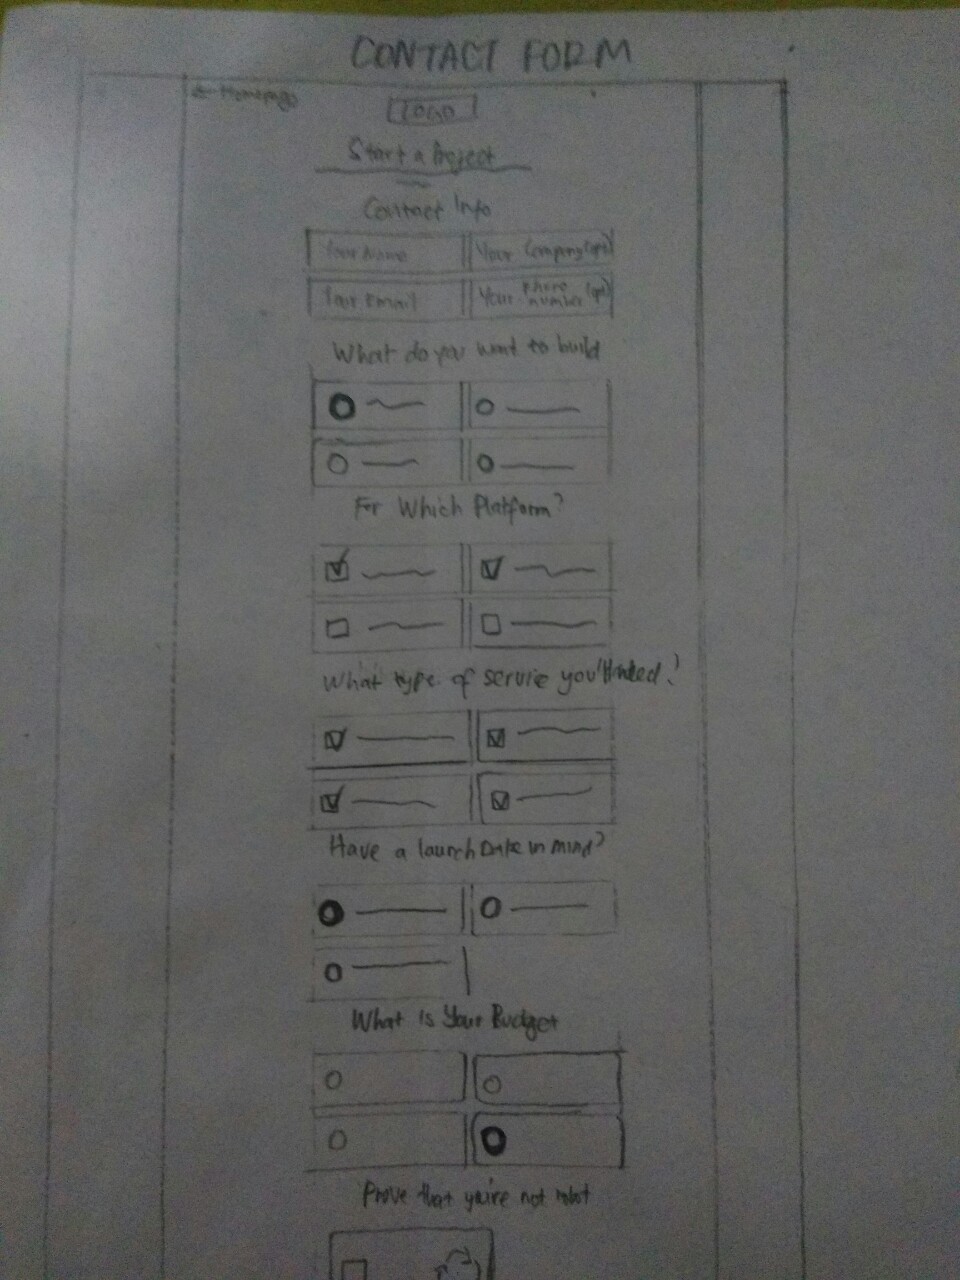 CONTACT FORM
← Homepage
LOGO
Start a Project
Contact Info
Your Name
Your Company (opt)
Your Email
Your phone number (opt)
What do you want to build
For Which Platform?
What type of service you'll need?
Have a launch Date in mind?
What Is Your Budget
Prove that you're not robot